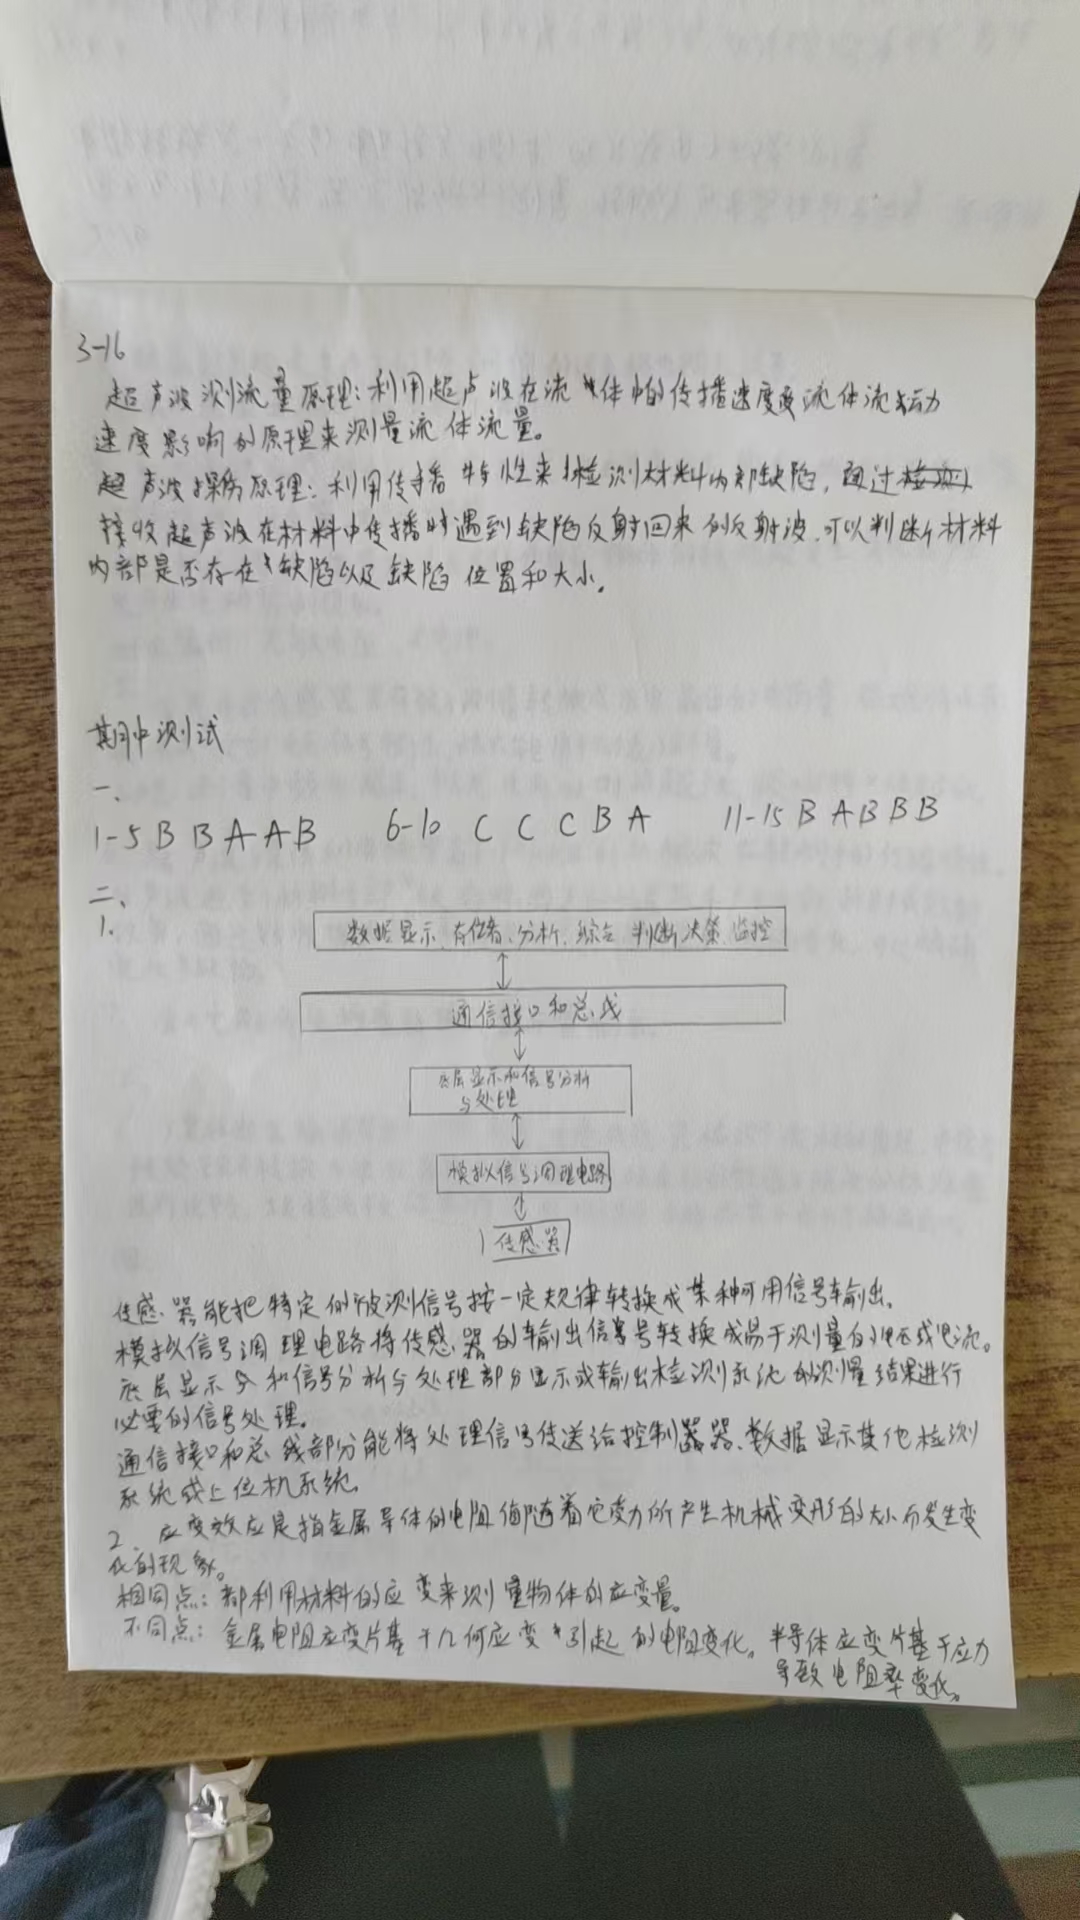 3-16
超声波测流量原理：利用超声波在流体中的传播速度受流体流动
速度影响的原理来测量流体流量。
超声波探伤原理：利用传播特性来检测材料内部缺陷，通过
接收超声波在材料中传播时遇到缺陷反射回来的反射波，可以判断材料
内部是否存在缺陷以及缺陷位置和大小。
期中测试
一、
1-5 B B A A B 6-10 C C C B A 11-15 B A B B B
二、
1.
数据显示、存储、分析、综合、判断决策、监控
通信接口和总线
底层显示和信号分析
与处理
模拟信号调理电路
传感器
传感器能把特定的被测信号按一定规律转换成某种可用信号输出。
模拟信号调理电路将传感器的输出信号转换成易于测量的电压或电流。
底层显示和信号分析与处理部分显示或输出检测系统的测量结果进行
必要的信号处理。
通信接口和总线部分能将处理信号传送给控制器、数据显示其他检测
系统或上位机系统。
2、应变效应是指金属导体的电阻值随着它受力所产生机械变形的大小而发生变
化的现象。
相同点：都利用材料的应变来测量物体的应变量。
不同点：金属电阻应变片基于几何应变引起的电阻变化。半导体应变片基于应力
导致电阻率变化。